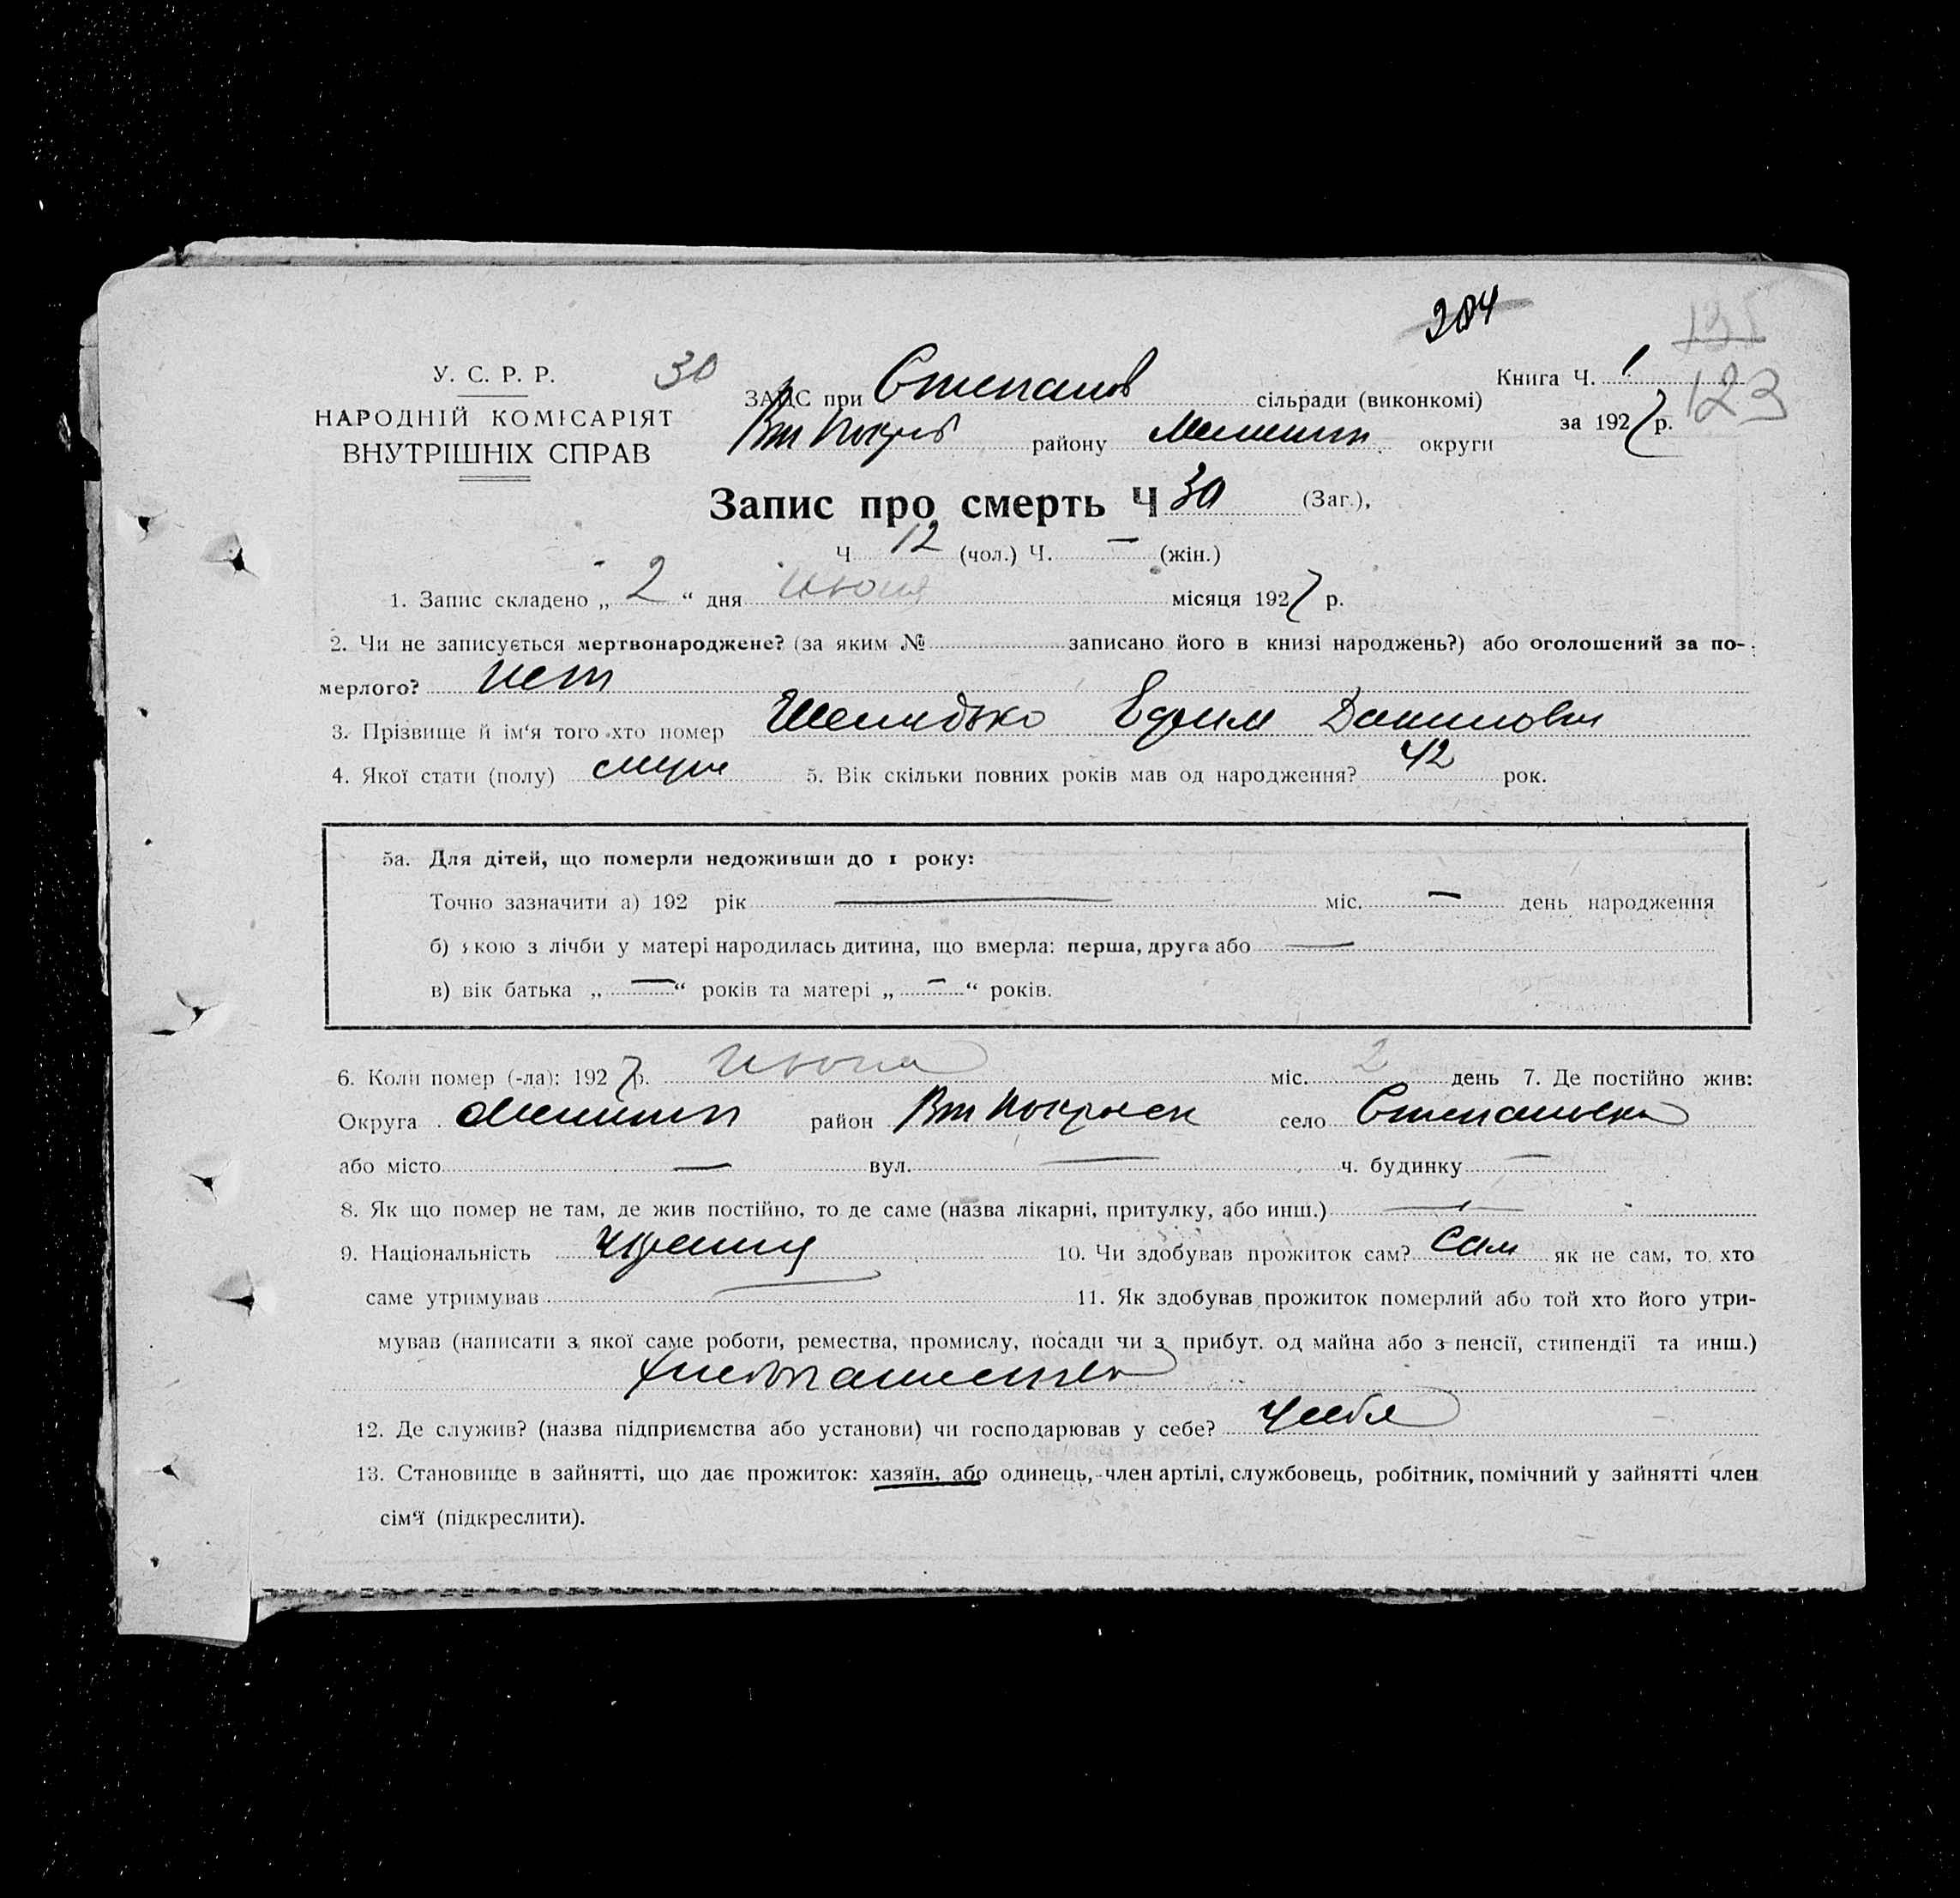 204
135
123
У. С. Р. Р.
НАРОДНІЙ КОМІСАРІЯТ
ВНУТРІШНІХ СПРАВ
30
ЗАГС при Степанов сільради (виконкомі)
району округи
Книга Ч. 1
за 1927 р.
Запис про смерть Ч 30 (Заг.),
Ч 12 (чол.) Ч. — (жін.)
1. Запис складено „ 2 “ дня июня місяця 1927 р.
2. Чи не записується мертвонароджене? (за яким № записано його в книзі народжень?) або оголошений за по-
мерлого? нет
3. Прізвище й ім‘я того хто помер Шелидько Ефим Данилович
4. Якої стати (полу) 5. Вік скільки повних років мав од народження? 42 рок.
5а. Для дітей, що померли недоживши до 1 року:
Точно зазначити а) 192 рік — міс. — день народження
б) якою з лічби у матері народилась дитина, що вмерла: перша, друга або —
в) вік батька „ — “ років та матері „ — “ років.
6. Коли помер (-ла): 1927 р. июня міс. 2 день 7. Де постійно жив:
Округа район село Степановка
або місто — вул. — ч. будинку —
8. Як що помер не там, де жив постійно, то де саме (назва лікарні, притулку, або инш.) —
9. Національність 10. Чи здобував прожиток сам? Сам як не сам, то хто
саме утримував — 11. Як здобував прожиток померлий або той хто його утри-
мував (написати з якої саме роботи, ремества, промислу, посади чи з прибут. од майна або з пенсії, стипендії та инш.)
хлебопашество
12. Де служив? (назва підприємства або установи) чи господарював у себе? У себя
13. Становище в зайнятті, що дає прожиток: хазяїн, або одинець, член артілі, службовець, робітник, помічний у зайнятті член
сім‘ї (підкреслити).